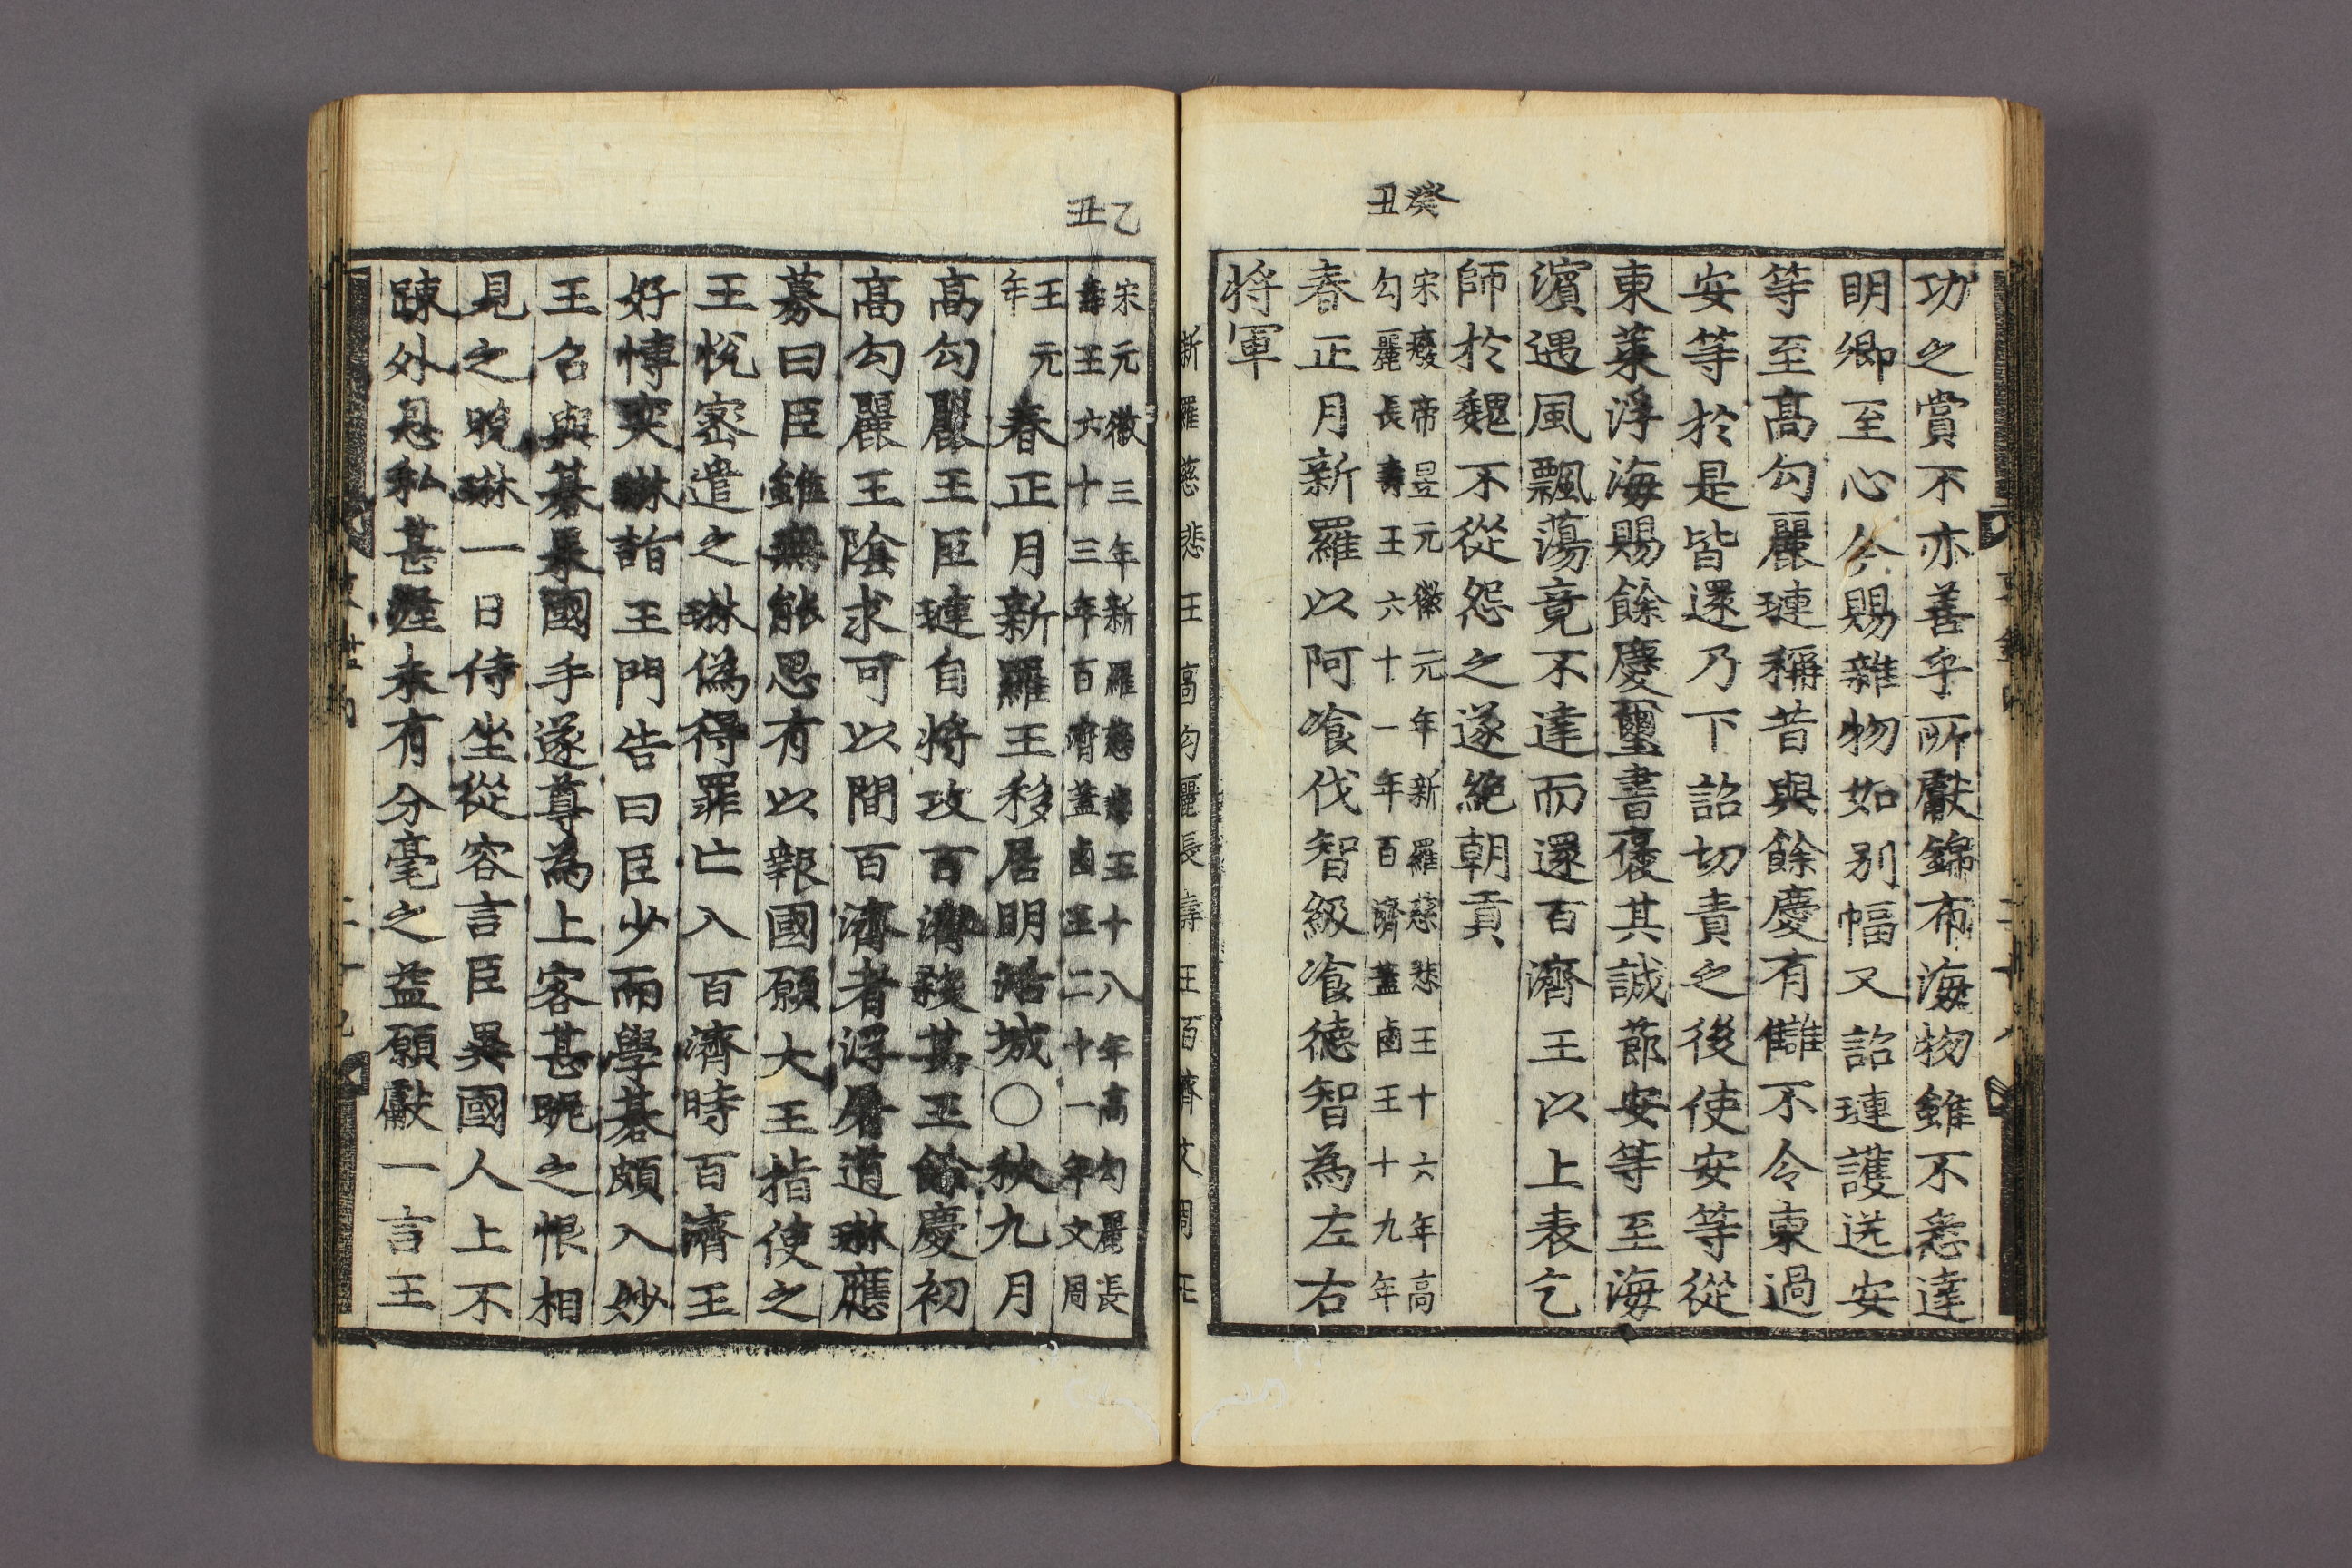 癸丑
功之賞不亦善乎所獻錦布海物雖不悉達
明卿至心今賜雜物如别幅又詔璉護送安
等至高勾麗璉稱昔與餘慶有讎不令東過
安等於是皆還乃下詔切責之後使安等從
東萊浮海賜餘慶璽書褒其誠節安等至海
濱遇風飄蕩竟不達而還百濟王以上表乞
師於魏不從怨之遂絶朝貢
宋廢帝昱元徽元年新羅慈悲王十六年高
勾麗長壽王六十一年百濟蓋鹵王十九年
春正月新羅以阿飡伐智級飡德智為左右
將軍
新羅慈悲王高勾麗長壽王百濟文周王
乙丑
宋元徽三年新羅慈悲王十八年高勾麗長
壽王六十三年百濟蓋鹵王二十一年文周
王元
年
春正月新羅王移居明活城○秋九月
高勾麗王臣璉自將攻百濟殺其王餘慶初
高勾麗王陰求可以間百濟者浮屠道琳應
募曰臣雖無能思有以報國願大王指使之
王悅密遣之琳偽得罪亡入百濟時百濟王
好博奕琳詣王門告曰臣少而學碁頗入妙
王召與碁果國手遂尊為上客甚昵之恨相
見之晩琳一日侍坐從容言臣異國人上不
踈外恩私甚渥未有分毫之益願獻一言王